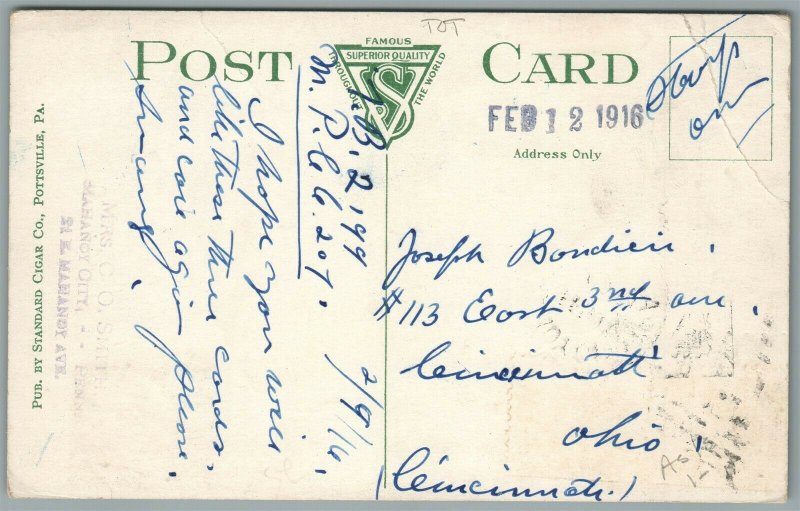 TOT
POST CARD
FAMOUS
SUPERIOR QUALITY
THROUGHOUT THE WORLD
VS
FEB 12 1916
Address Only
Stamp
on
I.B. 2,199
M.P.C.C. 207.
2/9/16.
I hope you will
like these three cards.
and come again please.
PUB. BY STANDARD CIGAR CO., POTTSVILLE, PA.
MRS. C. O. SMITH
MAHANOY CITY, - - PENN
21 E. MAHANOY AVE.
Joseph Bondieii.
#113 East 3rd ave.
Cincinnatti
Ohio,
(Cincinnati.)